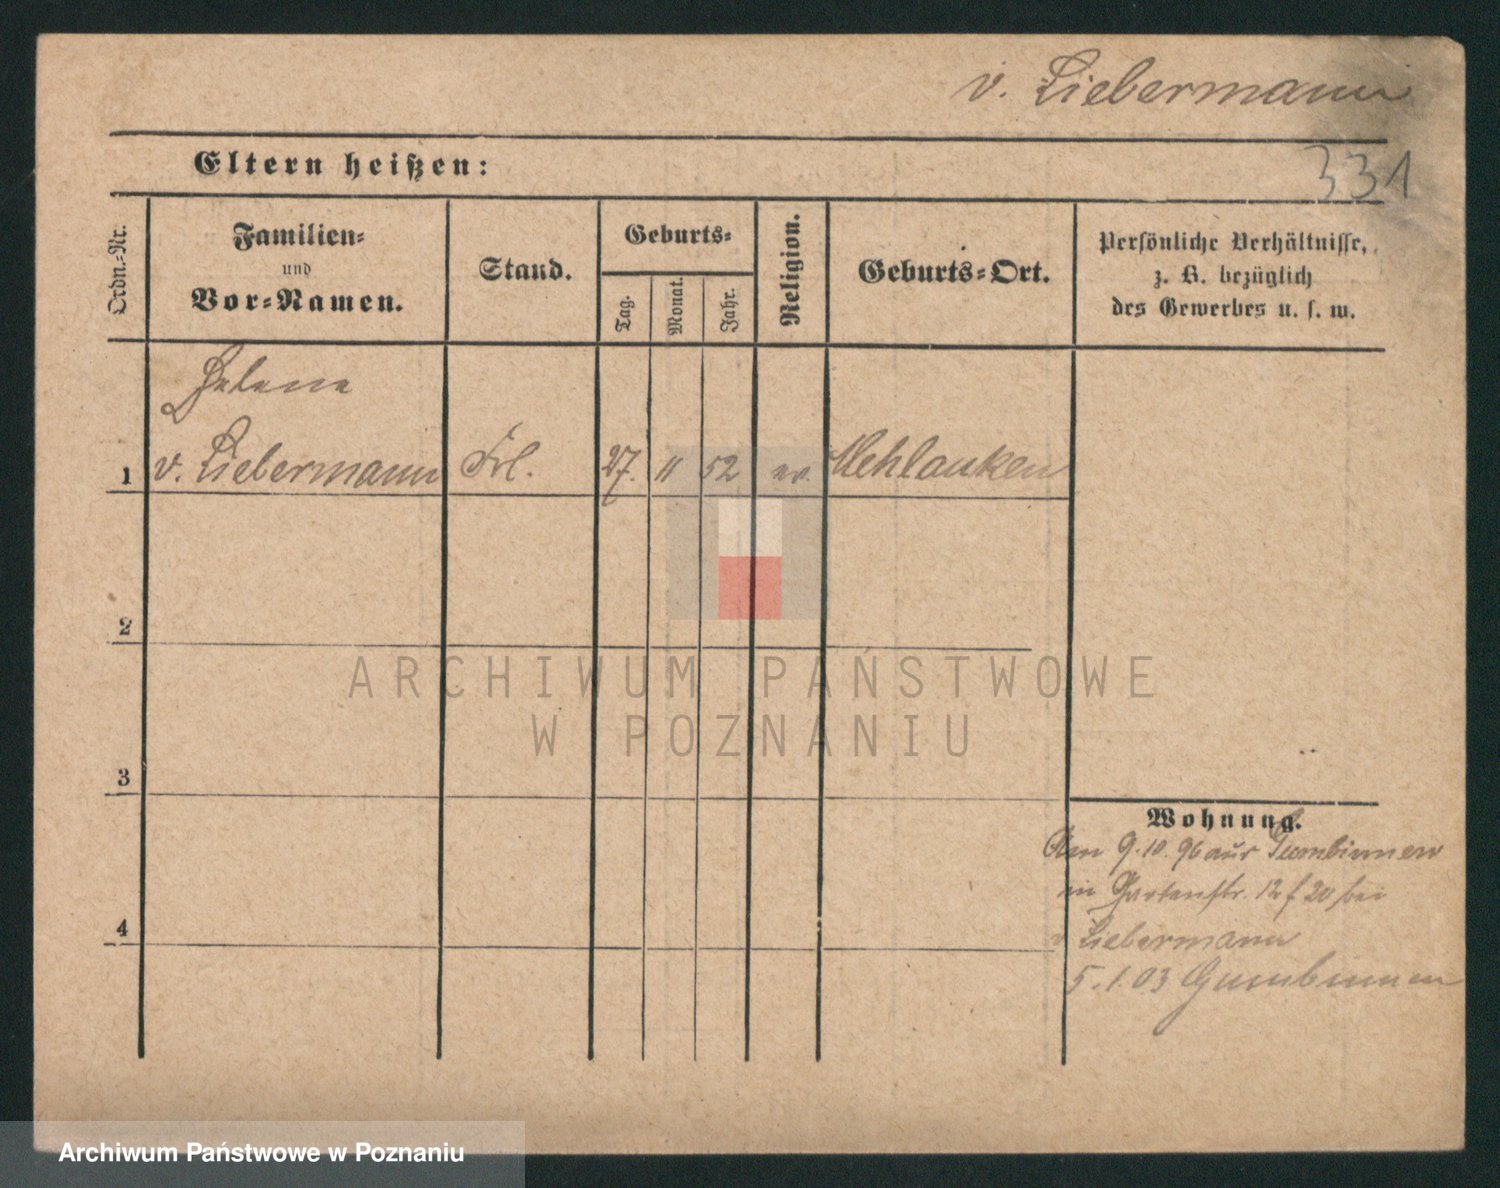 v. Liebermann
331
Eltern heißen:
Ordn.-Nr.
Familien-
und
Vor-Namen.
Stand.
Geburts-
Tag.
Monat.
Jahr.
Religion.
Geburts-Ort.
Persönliche Verhältnisse,
z. B. bezüglich
des Gewerbes u. s. w.
Helene
1 v. Liebermann Frl. 27. 11 52 ev. Mehlauken
2
ARCHIWUM PAŃSTWOWE
W POZNANIU
3
Wohnung.
Den 9. 10. 96 aus Gumbinnen
in Gartenstr. 12 f 20 bei
v Liebermann
4
5. 1. 03 Gumbinnen
Archiwum Państwowe w Poznaniu